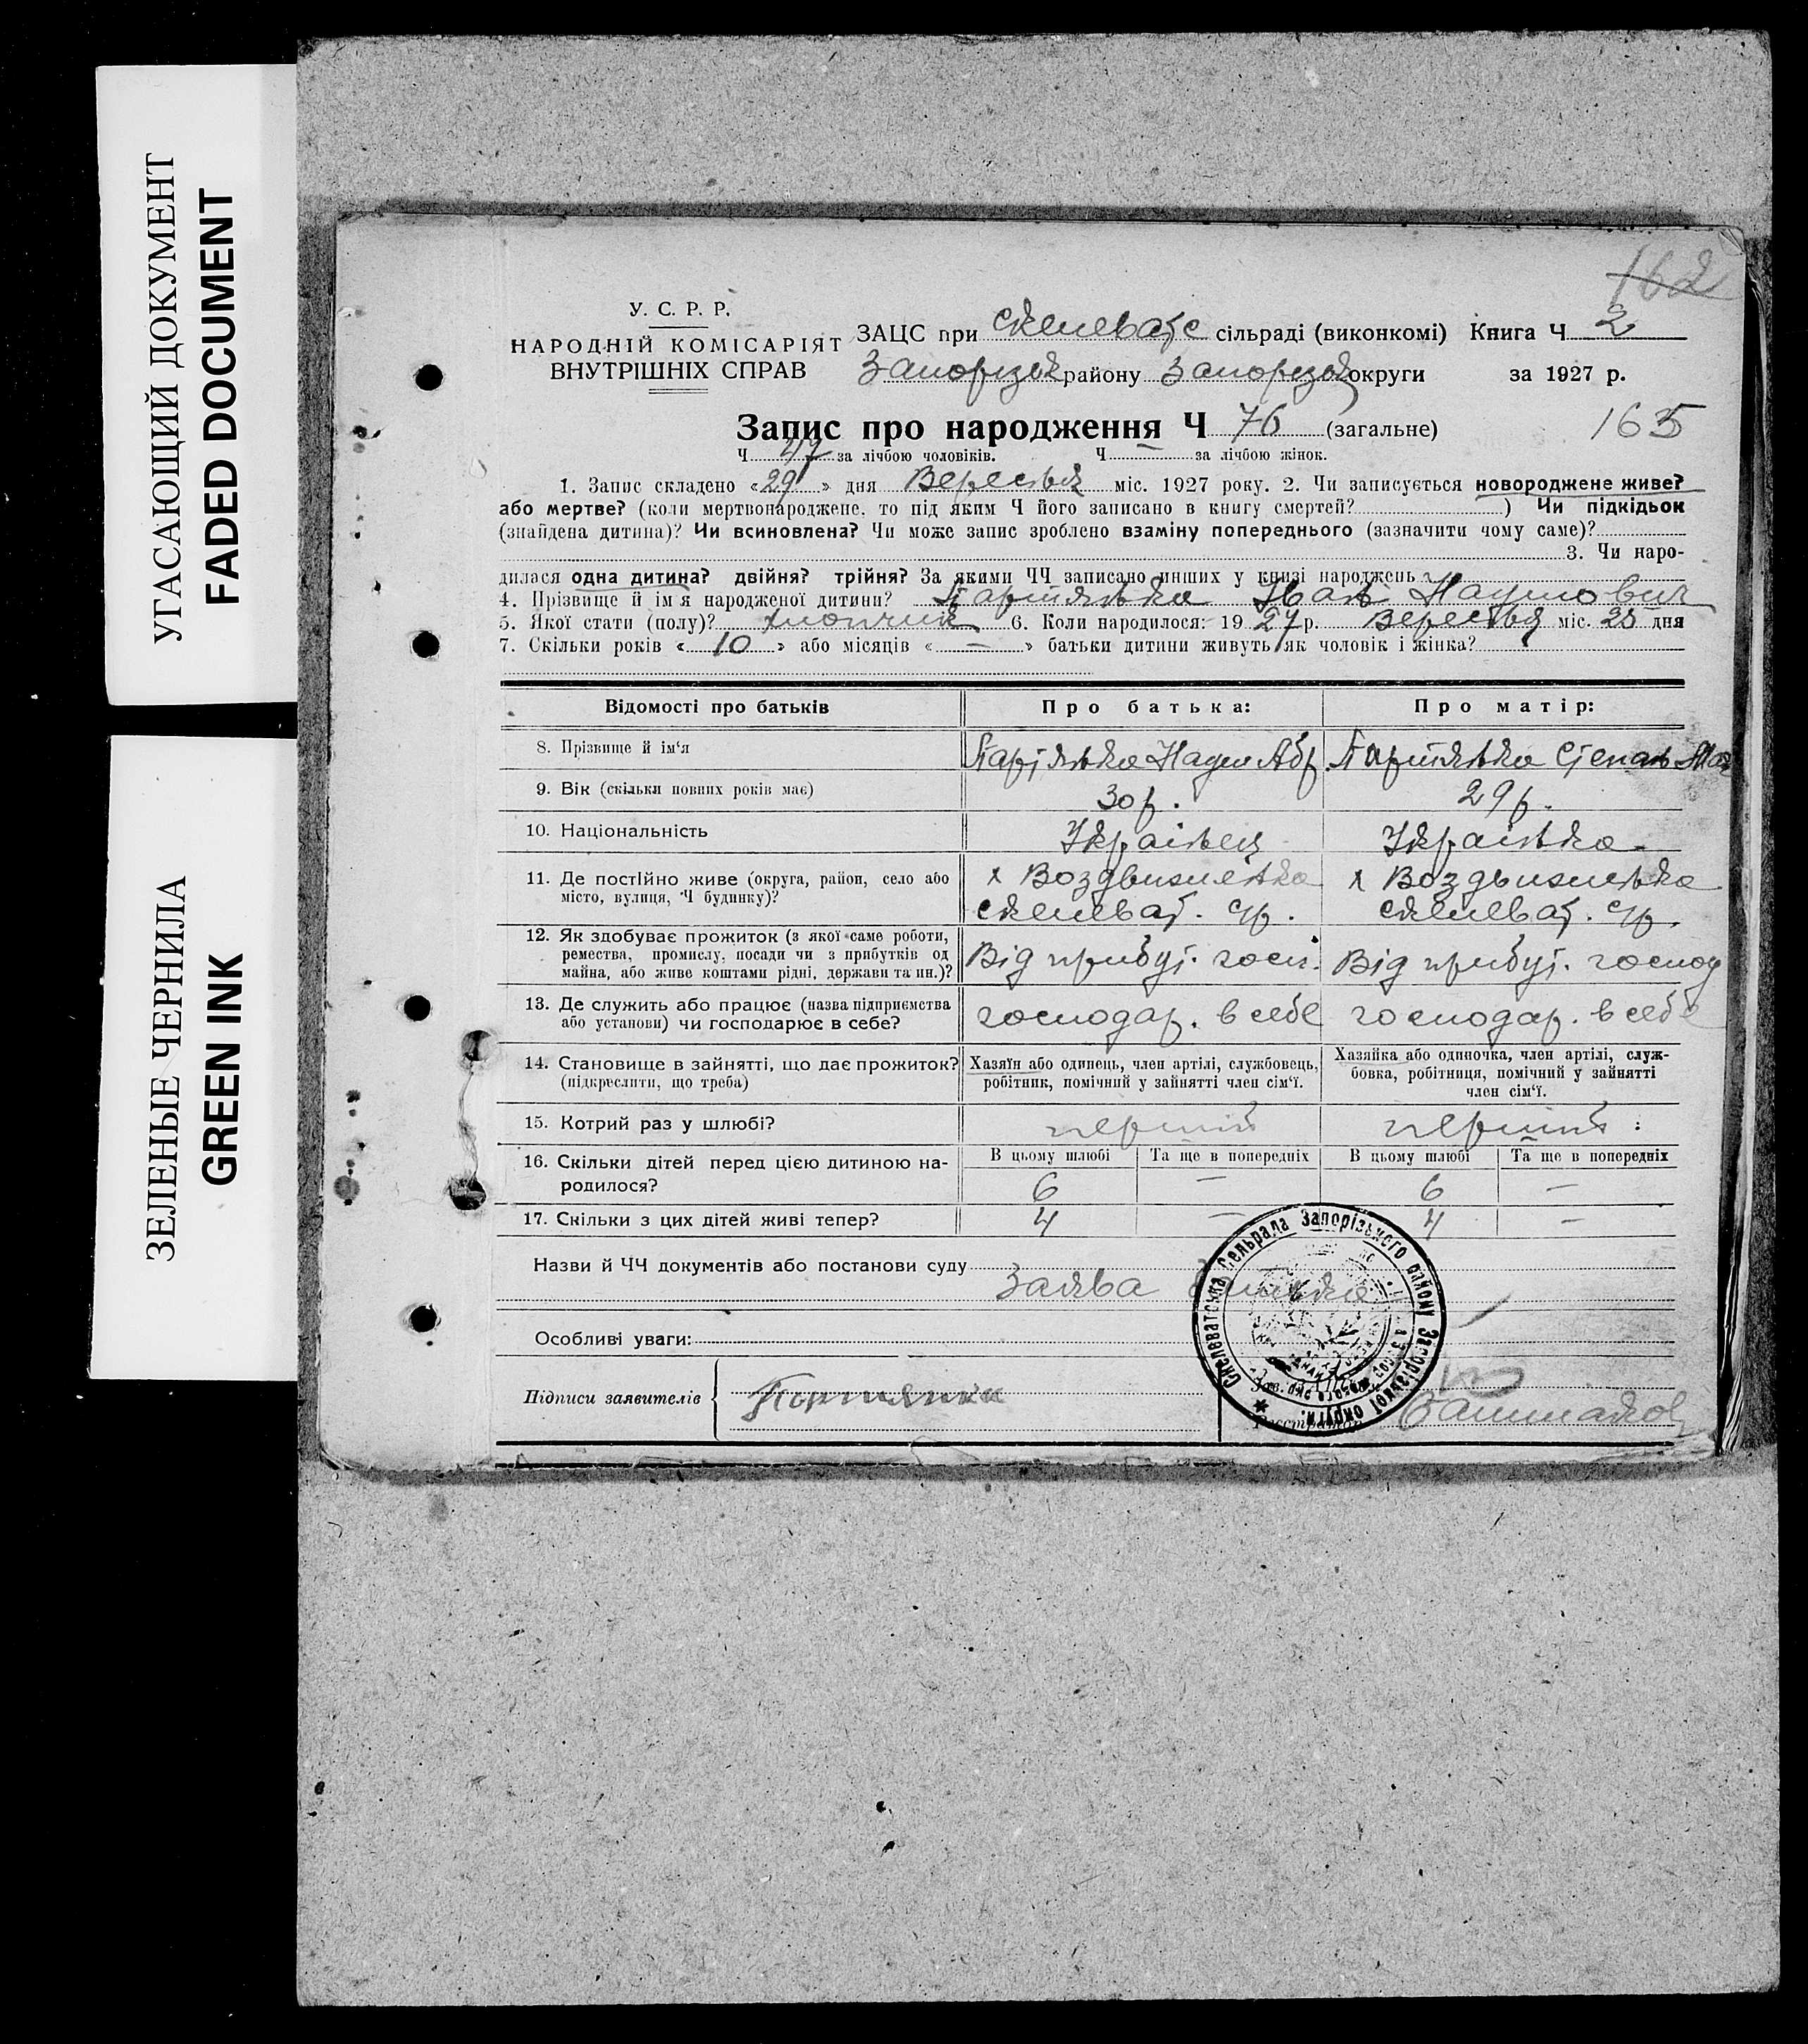 УГАСАЮЩИЙ ДОКУМЕНТ
FADED DOCUMENT
ЗЕЛЕНЫЕ ЧЕРНИЛА
GREEN INK
162
У. С. Р. Р.
НАРОДНІЙ КОМІСАРІЯТ
ВНУТРІШНІХ СПРАВ
ЗАЦС при Скелеватс сільраді (виконкомі) Книга Ч 2
Запорізьк району Запорізьк округи за 1927 р.
Запис про народження Ч 76 (загальне) 1635
Ч 47 за лічбою чоловіків. Ч — за лічбою жінок.
1. Запис складено «29» дня Вересня міс. 1927 року. 2. Чи записується новороджене живе?
або мертве? (коли мертвонароджене, то під яким Ч його записано в книгу смертей?) Чи підкідьок
(знайдена дитина)? Чи всиновлена? Чи може запис зроблено взаміну попереднього (зазначити чому саме)?
3. Чи наро-
дилася одна дитина? двійня? трійня? За якими ЧЧ записано инших у книзі народжень
4. Прізвище й ім'я народженої дитини? Партянка Іван Наумович
5. Якої стати (полу)? хлопчик 6. Коли народилося: 1927 р. Вересня міс. 25 дня
7. Скільки років «10» або місяців «—» батьки дитини живуть як чоловік і жінка?
Відомості про батьків Про батька: Про матір:
8. Прізвище й ім'я Партянка Наум Абр Партянка Степан
9. Вік (скільки повних років має) 30 р. 29 р.
10. Національність Українец Українка
11. Де постійно живе (округа, район, село або
місто, вулиця, Ч будинку)?
х Воздвиженка х Воздвиженка
Скелеват. с/р. Скелеват. с/р.
12. Як здобуває прожиток (з якої саме роботи,
ремества, промислу, посади чи з прибутків од
майна, або живе коштами рідні, держави та ин.)?
Від прибут. госп. Від прибут. господ
13. Де служить або працює (назва підприємства
або установи) чи господарює в себе?
господар. в себе господар. в себе
14. Становище в зайнятті, що дає прожиток?
(підкреслити, що треба)
Хазяїн або одинець, член артілі, службовець,
робітник, помічний у зайнятті член сім'ї.
Хазяйка або одиночка, член артілі, служ-
бовка, робітниця, помічний у зайнятті
член сім'ї.
15. Котрий раз у шлюбі? перший перший
16. Скільки дітей перед цією дитиною на-
родилося?
В цьому шлюбі Та ще в попередніх В цьому шлюбі Та ще в попередніх
6 — 6 —
17. Скільки з цих дітей живі тепер? 4 — 4 —
Назви й ЧЧ документів або постанови суду
Заява батька
Особливі уваги:
Скелеватська Сельрада Запорізького району Запорізької округи.
Підписи заявителів Портянка
Зав. ЗАЦС
Реєстратор